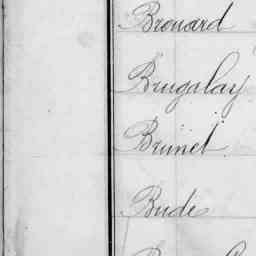 Brouard
Brugalay
Brunet
Bude